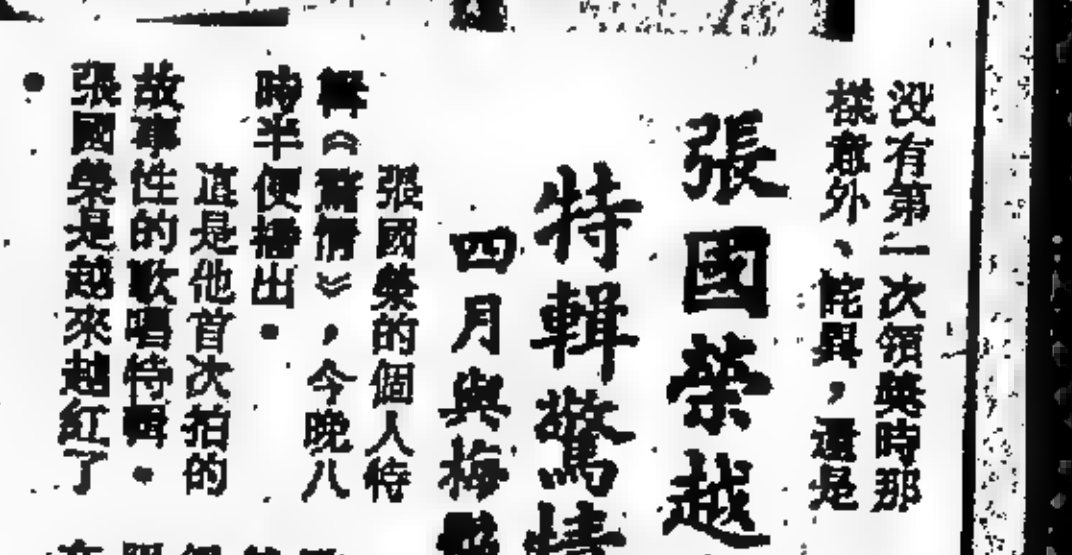 没有第二次領奬時那
樣意外、詫異，還是
張國榮越
特輯驚情
四月與梅
張國榮的個人特
輯《驚情》，今晚八
時半便播出●
這是他首次拍的
故事性的歌唱特輯●
張國榮是越來越紅了
●